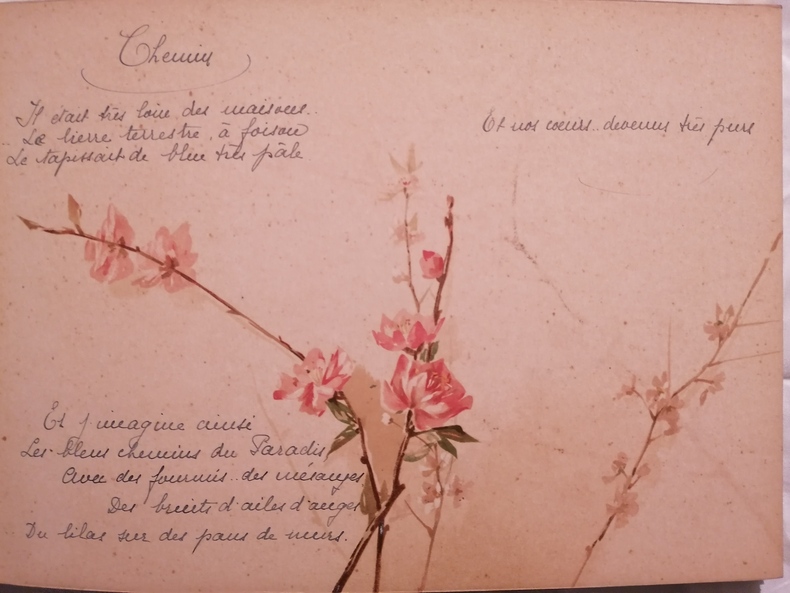 Chemin
Il était très loin des maisons..
.. Le lierre terrestre, à foison
Le tapissait de bleu très pâle
Et nos cœurs.. devenus très purs
Et j'imagine ainsi
Les bleus chemins du Paradis
Avec des fourmis.. des mésanges
Des bruits d'ailes d'anges
Du lilas sur des pans de murs.